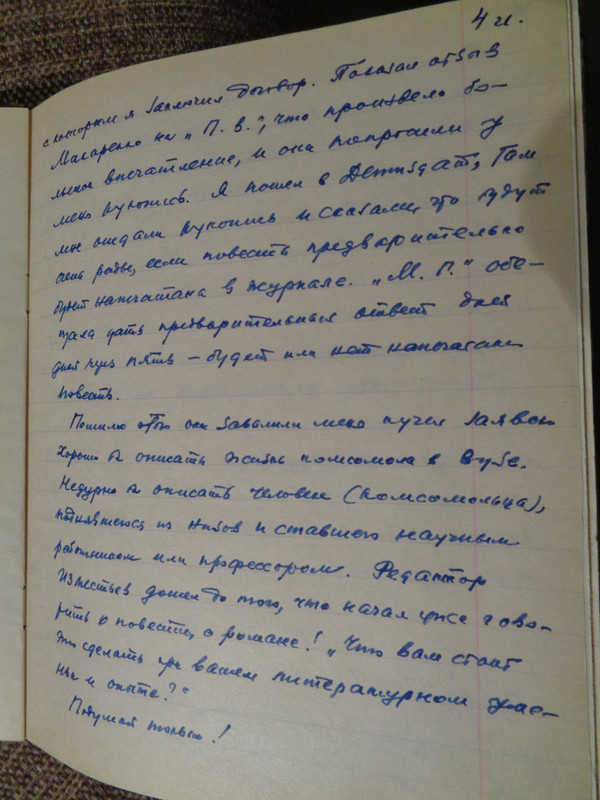 4 и.
с которым я заключил договор. Показал отзыв
Макаренко на „П. В.", что произвело бо-
льшое впечатление, и они попросили у
меня рукопись. Я пошел в Детиздат, Там
мне отдали рукопись и сказали, что будут
очень рады, если повесть предварительно
будет напечатана в журнале. „М. Г." обе-
щала дать предварительный ответ дней
дней через пять – будет или нет напечатана
повесть.
Помимо этого они завалили меня кучей заявок
Хорошо б описать жизнь комсомола в Вузе.
Недурно б описать человека (комсомольца),
поднявшегося из низов и ставшего научным
работником или профессором. Редактор
Известьев дошел до того, что начал уже гово-
рить о повести, о романе! „Что вам стоит
это сделать при вашем литературном
и опыте?"
Подумай только!